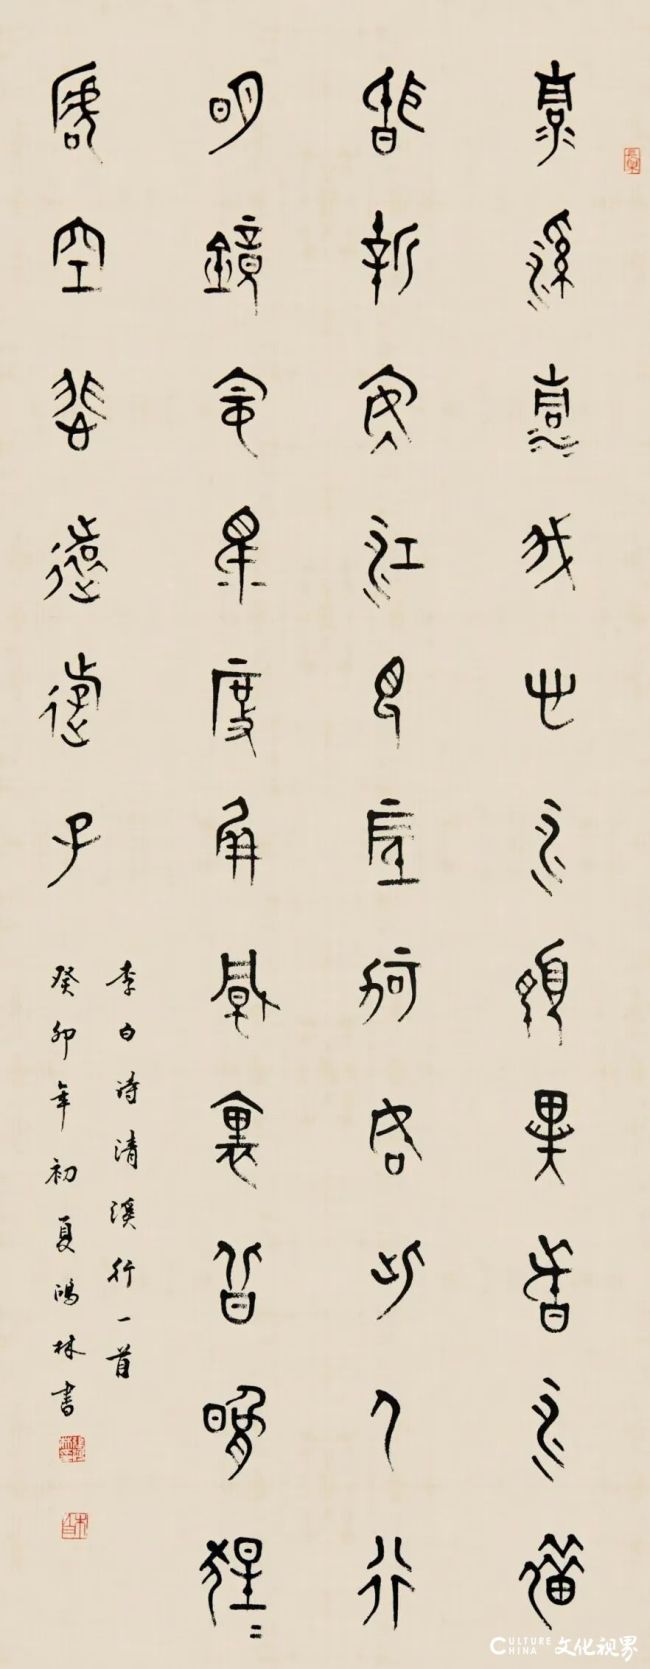 清溪清我心水色異諸水借
問新安江見底何如此人行
明鏡中鳥度屏風裏向晚猩〻
啼空悲遠遊子
李白詩清溪行一首
癸卯年初夏鴻林書
CULTURE CHINA 文化视界